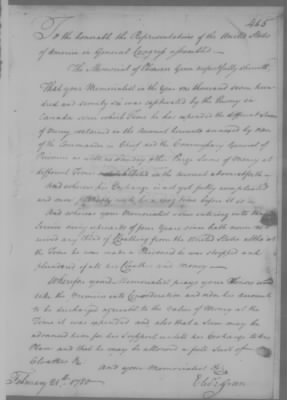 465
To the honorable the Representatives of the United States
of America in General Congress assembled
The Memorial of Ebenezer Green respectfully sheweth
That your Memorialist in the Year one thousand seven hun-
dred and seventy six was captivated by the Enemy in
Canada since which Time he has expended the different Sums
of Money contained in the Account herewith
of the Commander in Chief and the Commissary General of
Prisoners as well as sundry other large Sums of Money at
different Times in the account aforesaid
And whereas his Exchange is not yet fully compleated
and may be a long time before it is
And whereas your Memorialist since entering into the
Service being upwards of four Years since hath never re-
ceived any kind of Cloathing from the United States altho at
the Time he was made a Prisoner he was stripped and
plundered of all his Cloaths and Money
Wherefore your Memorialist prays your Honors would
take the Premises into Consideration and order his account
to be discharged agreeable to the Value of Money at the
Time it was expended and also that a Sum may be
advanced him for his Support untill his Exchange takes
Place and that he may be allowed a full Suit of
Cloathes &c
And your Memorialist &c
Ebr. Green
February 21st 1780